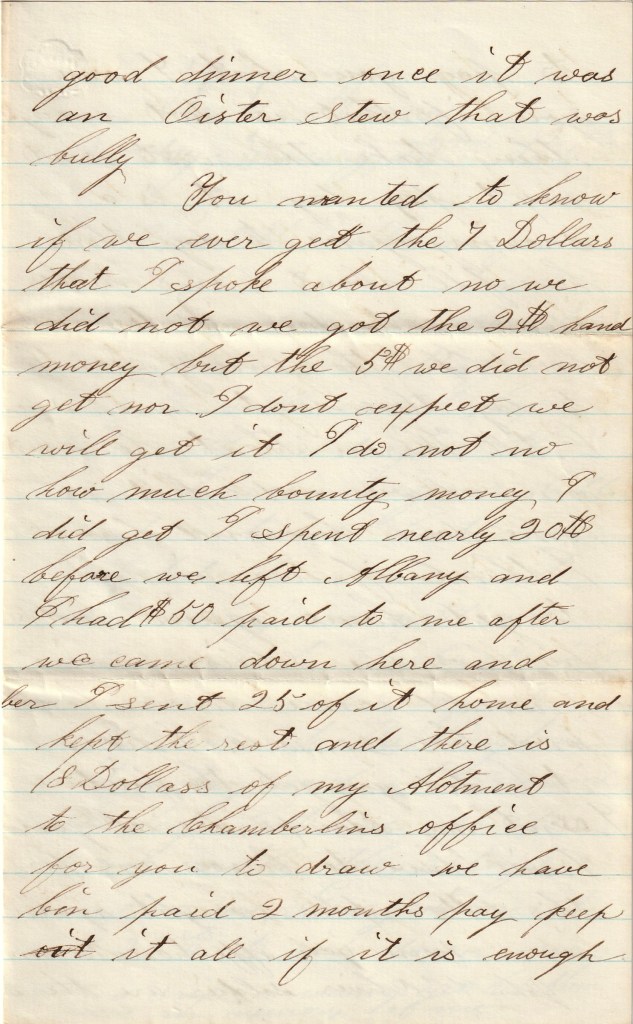 good dinner once it was
an Oister stew that was
bully
You wanted to know
if we ever get the 7 Dollars
that I spoke about no we
did not we got the 2$ hand
money but the 5$ we did not
get nor I dont expect we
will get it I do not no
how much bounty money I
did get I spent nearly 20$
before we left Albany and
I had $50 paid to me after
we came down here and
ber I sent 25 of it home and
kept the rest and there is
18 Dollars of my Alotment
to the Chamberlins office
for you to draw we have
bin paid 2 months pay keep
out it all if it is enough